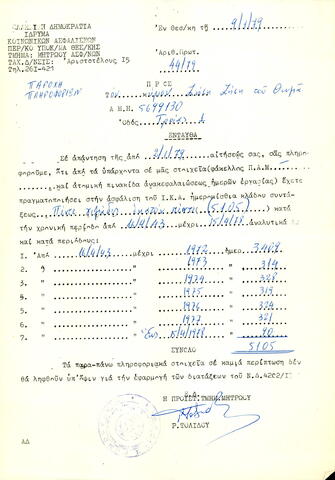 ΕΛΛΗΝΙΚΗ ΔΗΜΟΚΡΑΤΙΑ
ΙΔΡΥΜΑ
ΚΟΙΝΩΝΙΚΩΝ ΑΣΦΑΛΙΣΕΩΝ
ΠΕΡ/ΚΟ ΥΠΟΚ/ΜΑ ΘΕΣ/ΚΗΣ
ΤΜΗΜΑ: ΜΗΤΡΩΟΥ ΑΣΦ/ΝΩΝ
ΤΑΧ.Δ/ΝΣΙΣ: Αριστοτέλους 15
Τηλ.261-421
Ἐν Θεσ/κη τῇ 9/1/79
Ἀριθ.Πρωτ.
44/79
ΠΑΡΟΧΗ
ΠΛΗΡΟΦΟΡΙΩΝ
ΠΡΟΣ
Τὸν τοῦ Θωμᾶ
Α Μ Η : 5699130
Ὁδός
ΕΝΤΑΥΘΑ
Σέ ἀπάντηση τῆς ἀπό 9/1/79 αἰτήσεώς σας, σᾶς πληρο-
φοροῦμε, ὅτι ἀπό τά ὑπάρχοντα σέ μᾶς στοιχεῖα(φάκελλος Π.Α.Μ
καί ἀτομική πινακίδα ἀνακεφαλαιώσεως ἡμερῶν ἐργασίας) ἔχετε
πραγματοποιήσει στήν ἀσφάλιση τοῦ Ι.Κ.Α. ἡμερομίσθια κλάδου συντά-
ξεως Πέντε χιλιάδες ἑκατόν πέντε (5105) κατά
τήν χρονική περίοδο ἀπό 16/4/43 μέχρι 15/4/78 ἀναλυτικά
καί κατά περιόδους:
1. Ἀπό 16/4/43 μέχρι 1972 ἡμερ. 3409
2. " " 1973 " 314
3. " " 1974 " 328
4. " " 1975 " 319
5. " " 1976 " 324
6. " " 1977 " 321
7. " " Ἕως 15/4/1978 " 90
ΣΥΝΟΛΟ 5105
Τά παρα-πάνω πληροφοριακά στοιχεῖα σέ καμιά περίπτωση δέν
θά ληφθοῦν ὑπ'ὄψιν γιά τήν ἐφαρμογή τῶν διατάξεων τοῦ Ν.Δ.4202/1
Η ΠΡΟΪΣΤ.ΤΜΗΜ.ΜΗΤΡΩΟΥ
Ρ.ΤΟΛΙΔΟΥ
ΑΔ